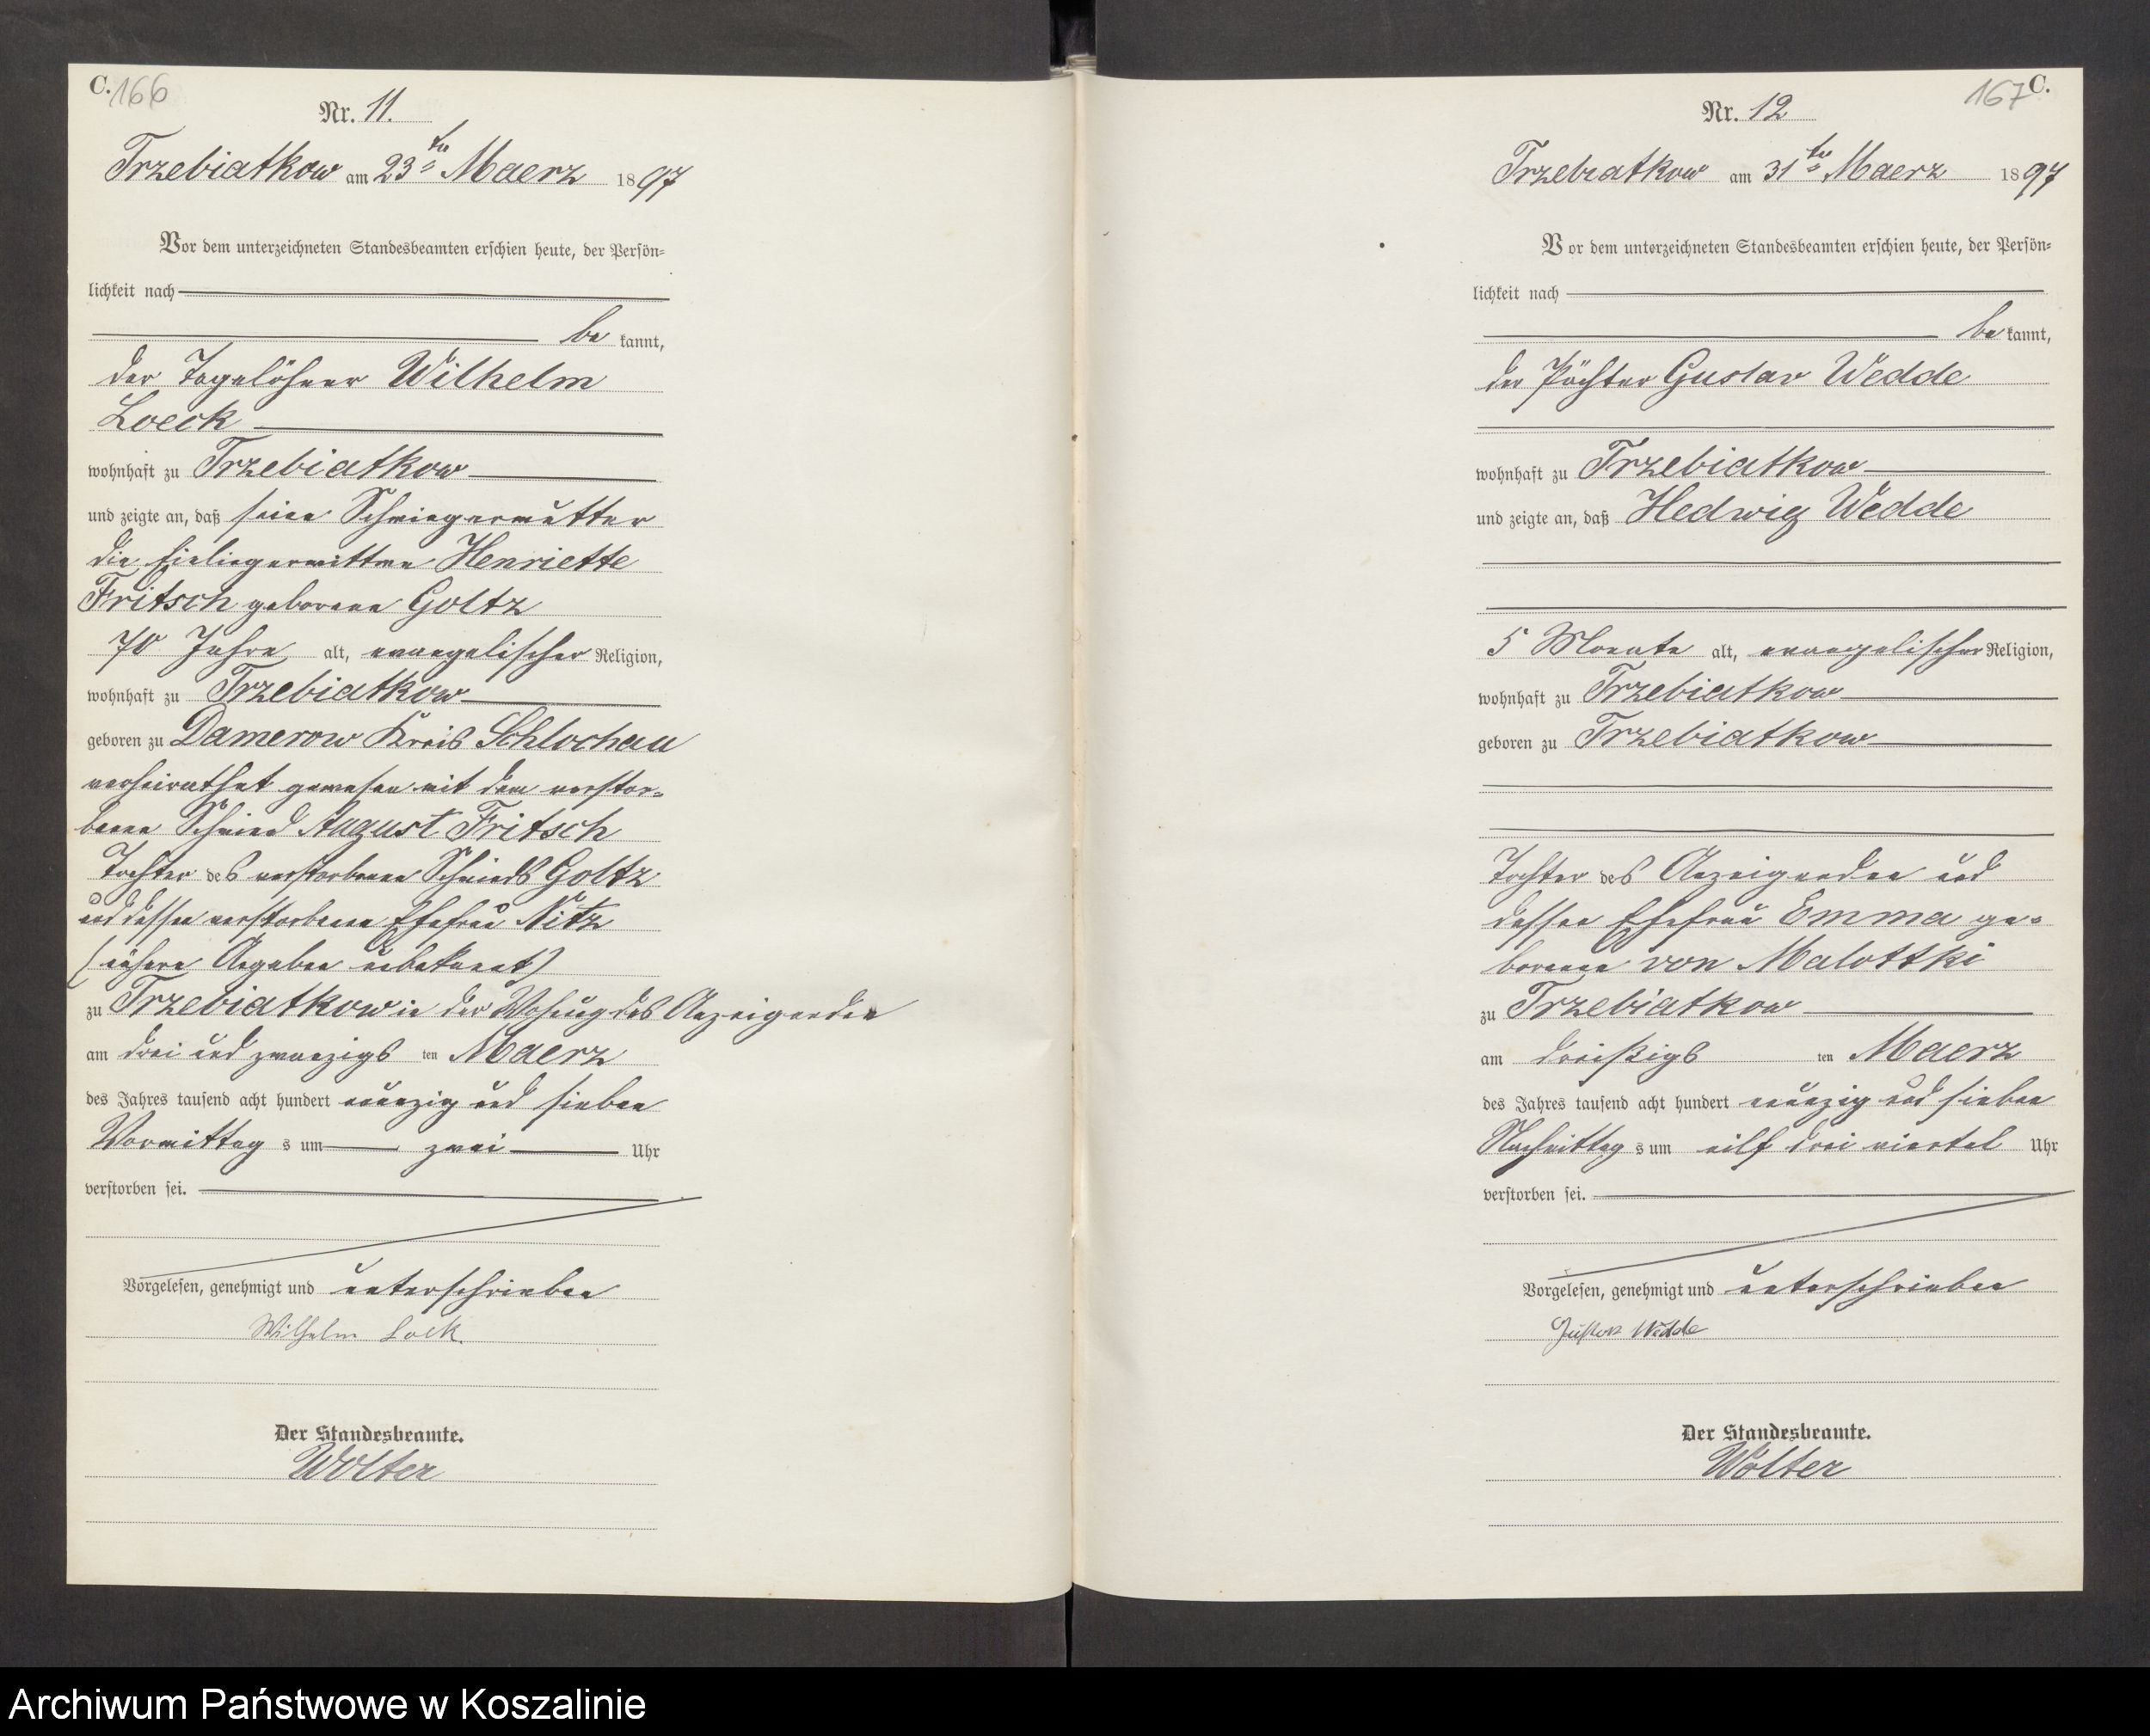 C. 166
Nr. 11.
Trzebiatkow am 23ten Maerz 1897
Vor dem unterzeichneten Standesbeamten erschien heute, der Persön-
lichkeit nach
be kannt,
der Tagelöhner Wilhelm
Loeck
wohnhaft zu Trzebiatkow
und zeigte an, daß seine Schwiegermutter
die Einliegerwittwe Henriette
Fritsch geborene Goltz
70 Jahre alt, evangelischer Religion,
wohnhaft zu Trzebiatkow
geboren zu Damerow Kreis Schlochau
verheirathet gewesen mit dem verstor-
benen Schmied August Fritsch
Tochter des verstorbenen Schmieds Goltz
und dessen verstorbenen Ehefrau Nitz
(nähere Angaben unbekannt)
zu Trzebiatkow in der Wohnung des Anzeigenden
am drei und zwanzigs ten Maerz
des Jahres tausend acht hundert neunzig und sieben
Vormittag s um zwei Uhr
verstorben sei.
Vorgelesen, genehmigt und unterschrieben
Wilhelm Loek.
Der Standesbeamte.
Wolter
167 C.
Nr. 12
Trzebiatkow am 31ten Maerz 1897
Vor dem unterzeichneten Standesbeamten erschien heute, der Persön-
lichkeit nach
be kannt,
der Pächter Gustav Wedde
wohnhaft zu Trzebiatkow
und zeigte an, daß Hedwig Wedde
5 Monate alt, evangelischer Religion,
wohnhaft zu Trzebiatkow
geboren zu Trzebiatkow
Tochter des Anzeigenden und
dessen Ehefrau Emma ge-
borenen von Malottki
zu Trzebiatkow
am dreißigs ten Maerz
des Jahres tausend acht hundert neunzig und sieben
Nachmittag s um eilf drei viertel Uhr
verstorben sei.
Vorgelesen, genehmigt und unterschrieben
Gustav Wedde
Der Standesbeamte.
Wolter
Archiwum Państwowe w Koszalinie